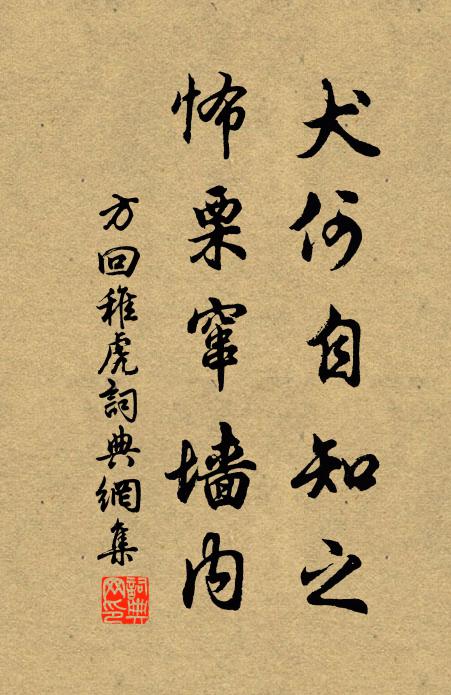 犬何自知之
怖栗窜墙内
方回稚虎詞典網集
詞典网印